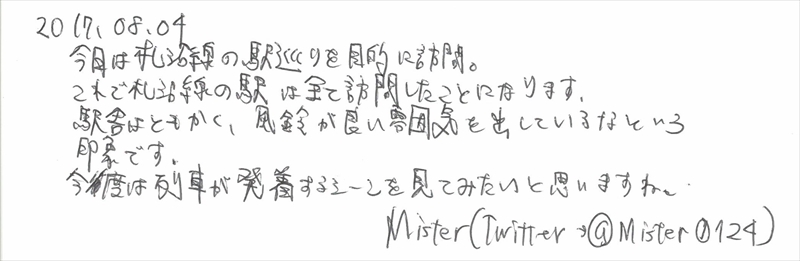 2017.08.04
今日は札沼線の駅巡りを目的に訪問。
これで札沼線の駅は全て訪問したことになります.
駅舎はともかく、風鈴が良い雰囲気を出しているなという
印象です.
今度は列車が発着するシーンを見てみたいと思いますね〜.
Mister(Twitter→@Mister0124)